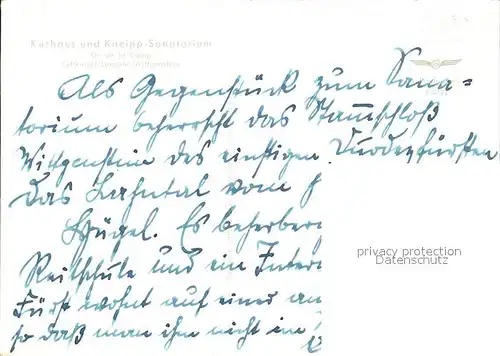 Kurhaus und Kneipp-Sanatorium
Als Gegenstück zum Sana=
torium beherrscht das Stammschloß
Wittgenstein des einstigen Duodezfürsten
das Lahntal vom
Hügel. Es beherberg
Reitschule und ein Intern
Fürst wohnt auf einer an
so daß man ihn nicht im
privacy protection
Datenschutz